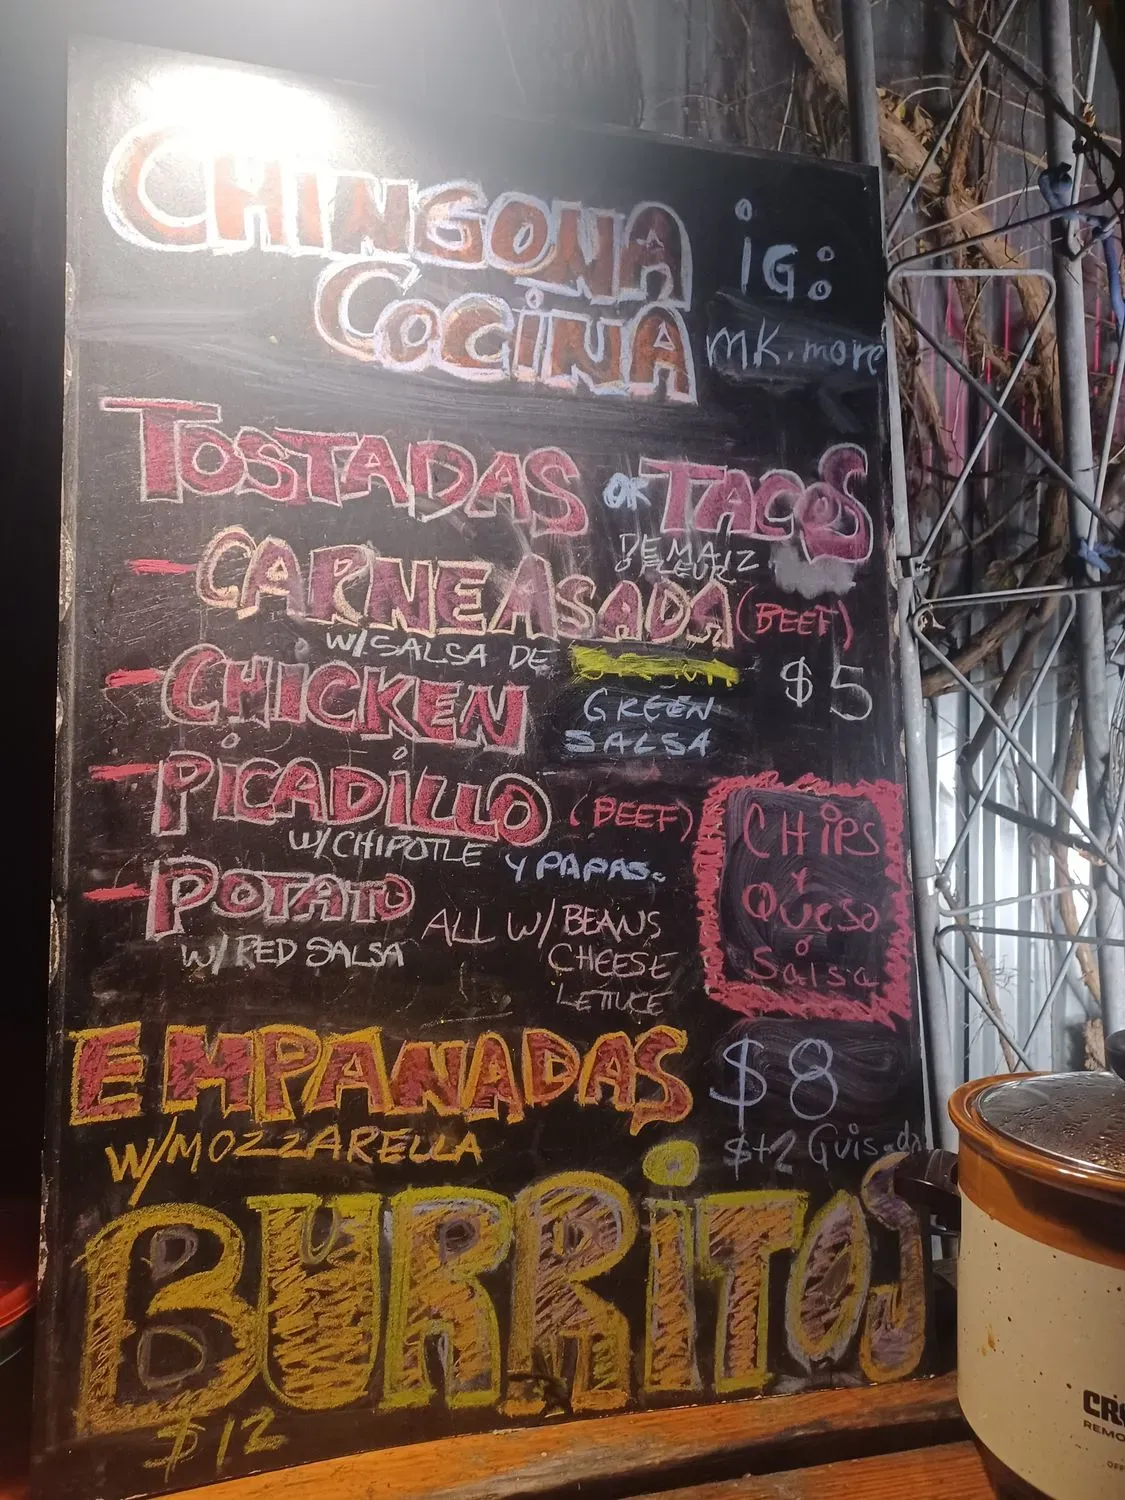 CHINGONA
COCINA
IG:
MK.more
TOSTADAS OR TACOS
DE MAIZ
CARNE ASADA (BEEF)
W/SALSA DE
$5
CHICKEN
GREEN
SALSA
PICADILLO (BEEF)
W/CHIPOTLE Y PAPAS.
POTATO
W/ RED SALSA
ALL W/ BEANS
CHEESE
LETTUCE
CHIPS
Y
QUESO
o
Salsa
EMPANADAS $8
W/MOZZARELLA
$+2 Guisada
BURRITOS
$12